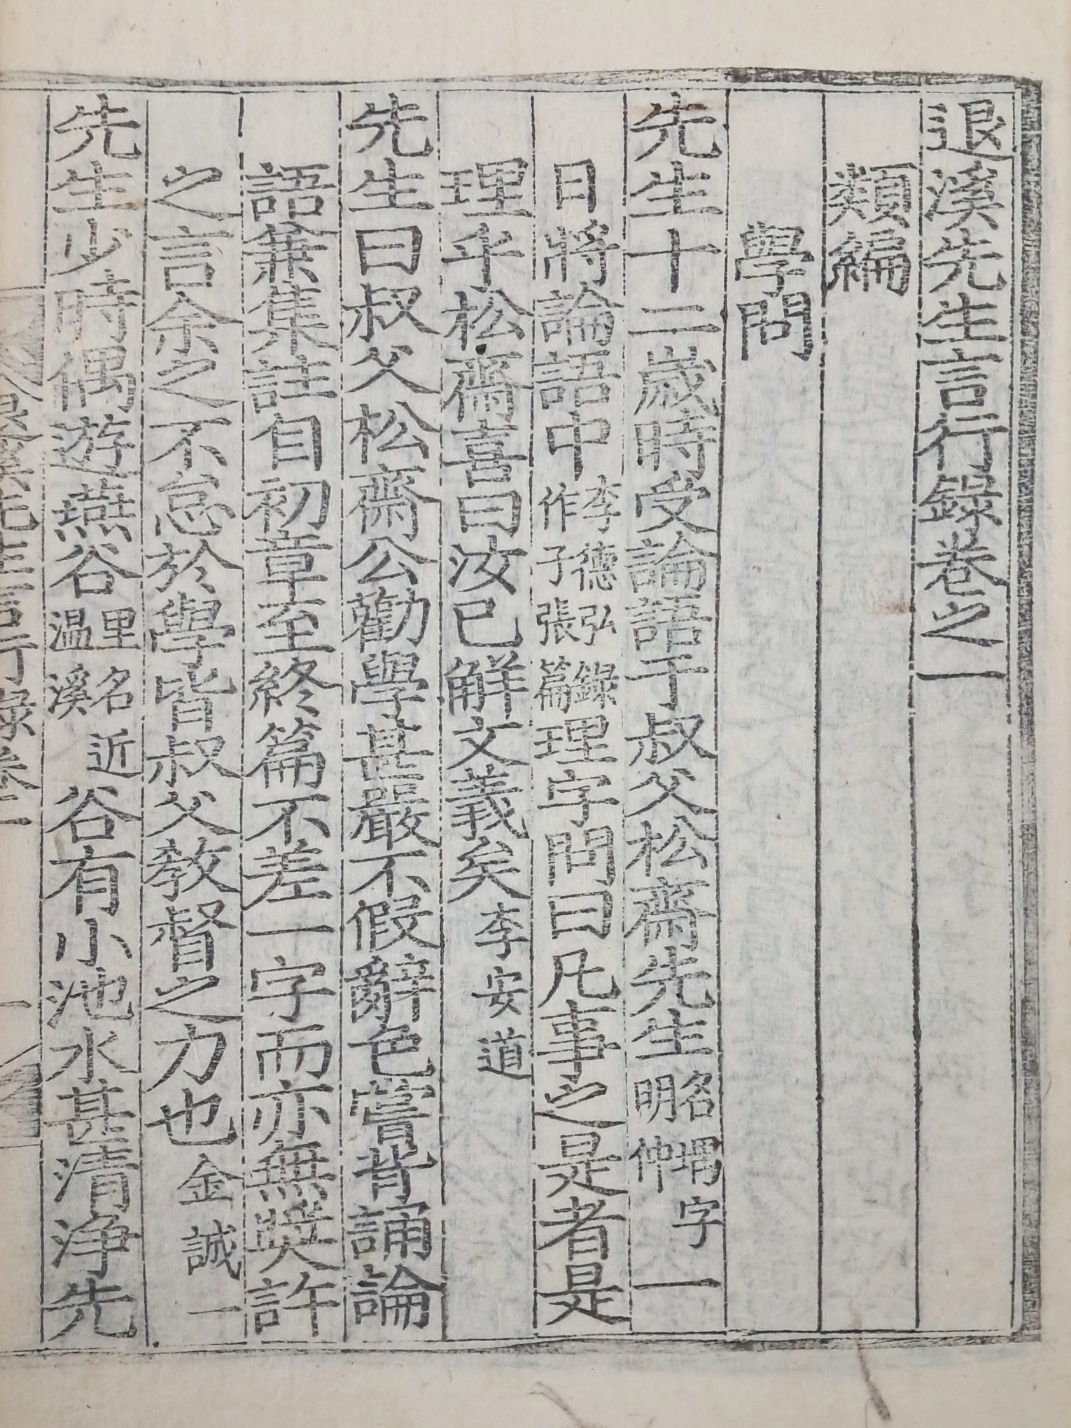 退溪先生言行錄卷之一
類編
學問
先生十二歲時受論語于叔父松齋先生名堣字明仲一
日將論語中李德弘錄作子張篇理字問曰凡事之是者是
理乎松齋喜曰汝已解文義矣李安道
先生曰叔父松齋公勸學甚嚴不假辭色嘗背誦論
語兼集註自初章至終篇不差一字而亦無奬許
之言余之不怠於學皆叔父敎督之力也金誠一
先生少時偶遊燕谷里名近温溪谷有小池水甚清浄先
退溪先生言行錄卷一
一